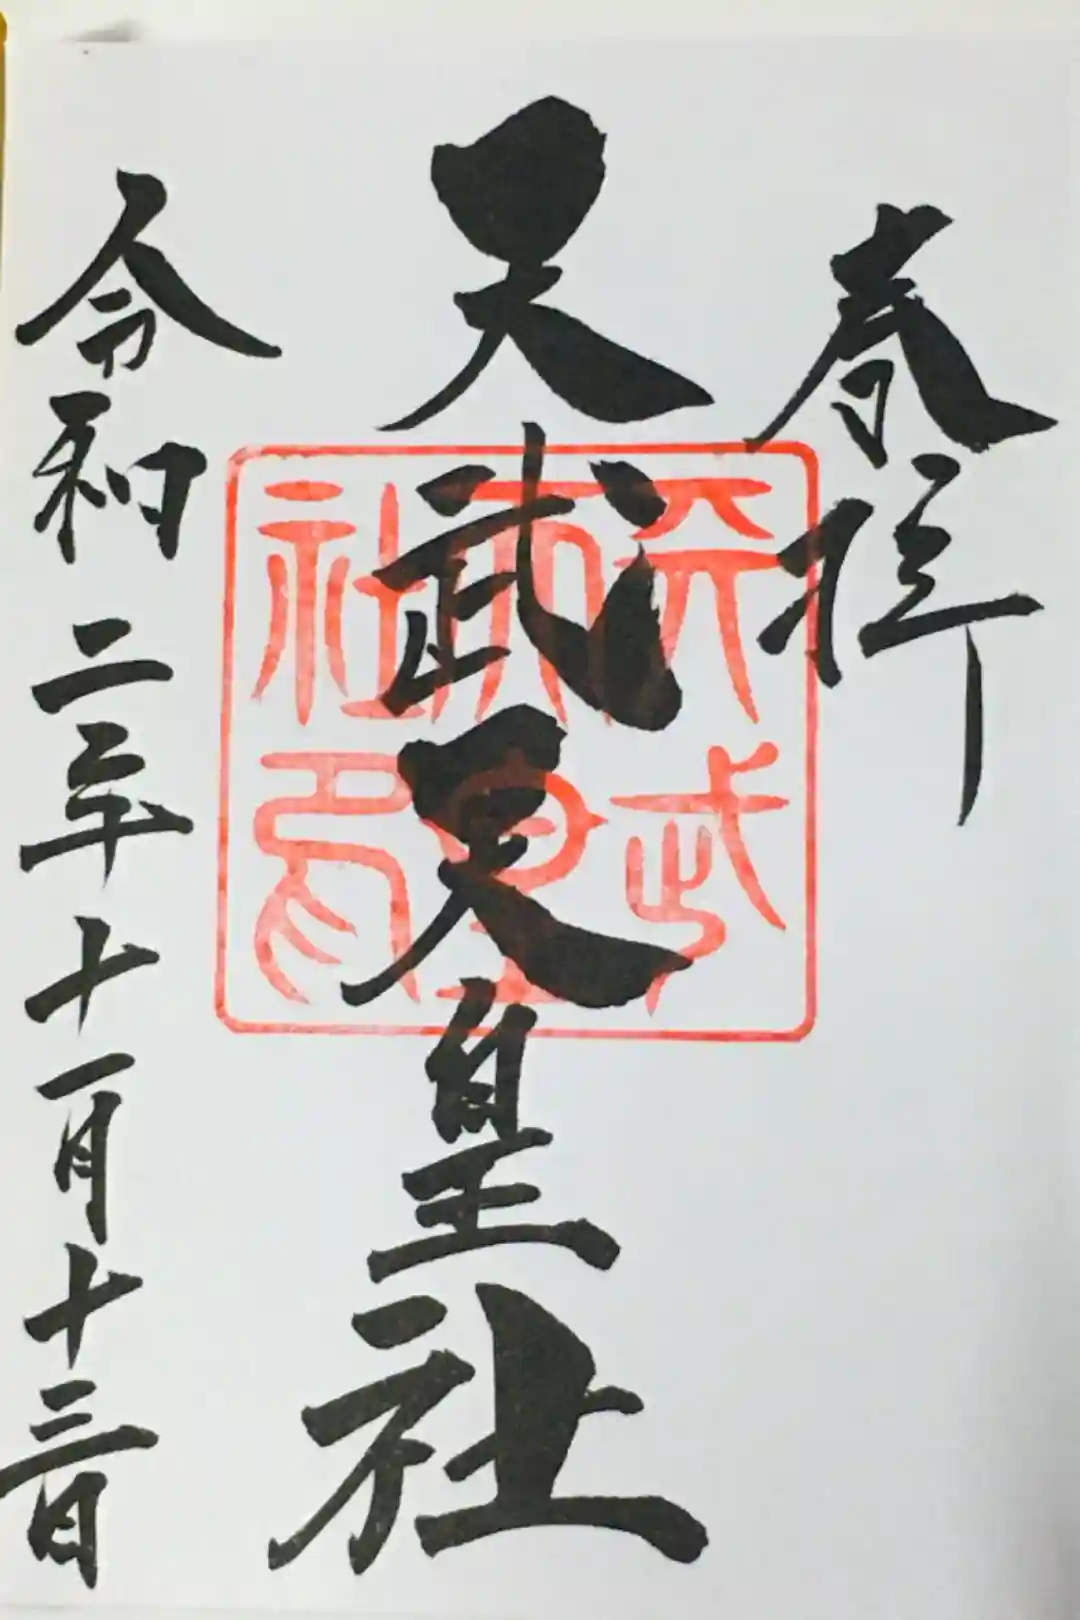 奉拝
天武天皇社
令和二年十一月十三日
天武
天皇
社印